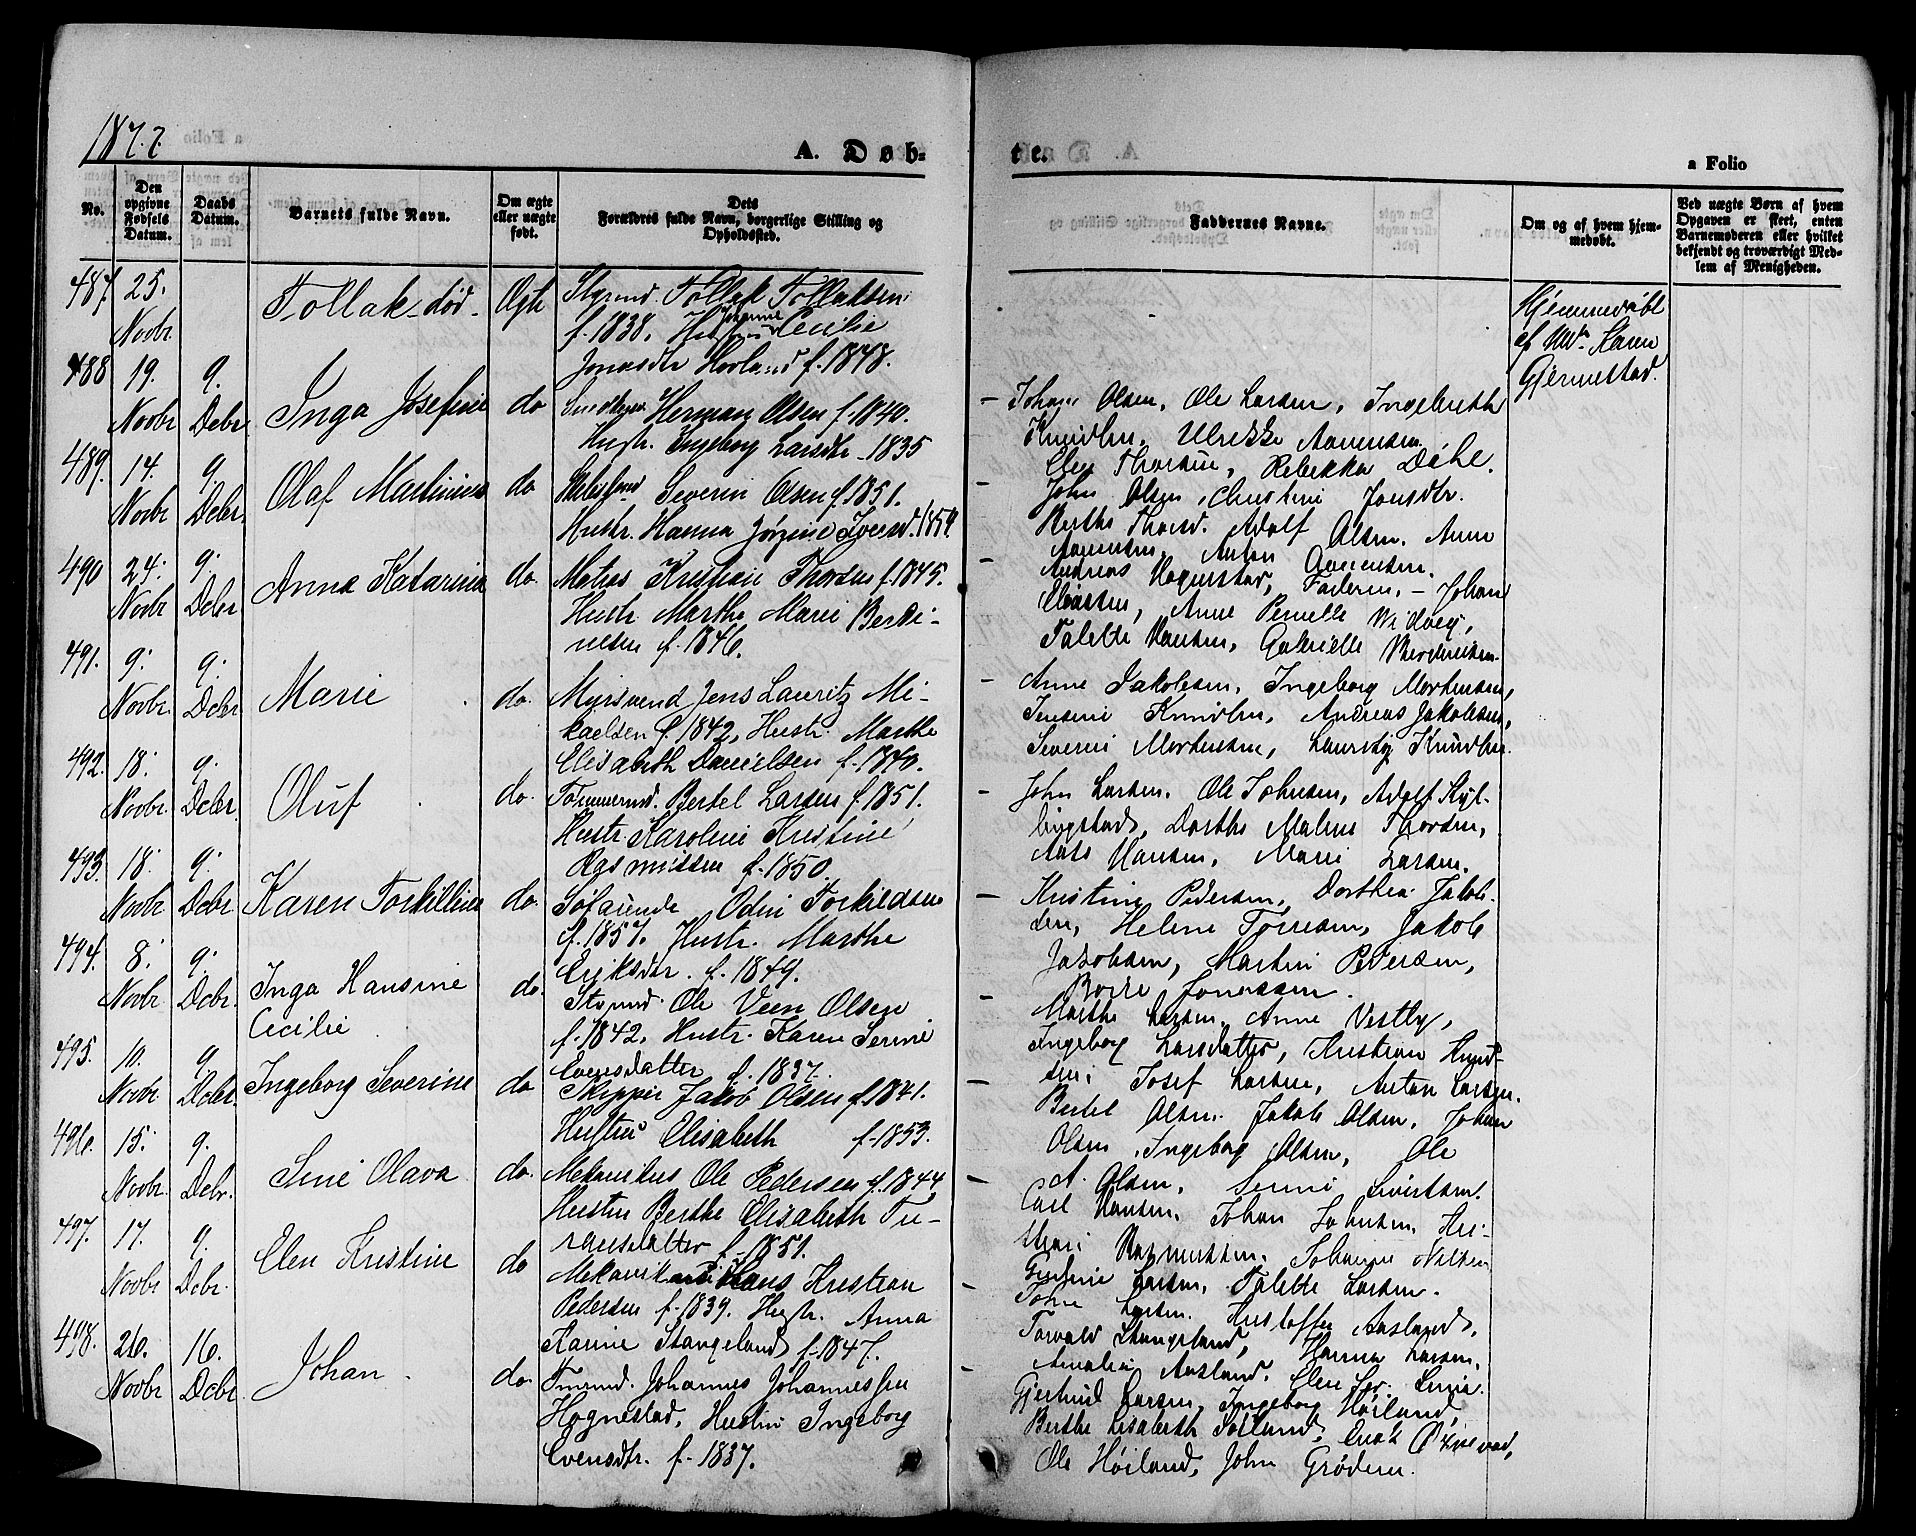 1877.
A. Døb-
te.
a Folio
No.
Den opgivne Fødsels Datum.
Daabs Datum.
Barnets fulde Navn.
Om ægte eller uægte født.
Dets Forældres fulde Navn, borgerlige Stilling og Opholdssted.
Faddernes Navne.
Om og af hvem hjemmedøbt.
Ved uægte Børn af hvem Opgaven er skeet, enten Barnemoderen eller hvilket bekjendt og troværdigt Medlem af Menigheden.
487. 25. Novbr. Tollak død. Ægte
Styrmd. Tollak Tollaksen
f. 1838. Hustru Johanne Cecilie
Jonasdtr Hovland f. 1848.
Hjemmedøbt
af Karen
Gjermestad.
488 19. Novbr 9. Debr. Inga Josefine do
Herman Olsen f. 1840.
Hustr. Ingeborg Larsdtr 1835
Johan Olsen, Ole Larsen, Ingebreth
Knudsen, Ulrikke Aanensen
Elen Thorsen, Rebekka Dehl.
489. 14. Novbr 9. Debr. Olaf Martinius do
Severin Olsen f. 1851.
Hustr. Hanna Jørgine Iversd. 1854
John Olsen, Christine Jonsdtr.
Berthe Thorsd. Adolf Olsen. Anne
Aanensen, Anton Aanensen.
490 24. Novbr 9. Debr Anna Katarina do.
Matias Kristian Thorsen f. 1845.
Hustr Marthe Marie Berti-
nesen f. 1846.
Andreas Hognestad, Faderen, - Johan
Eliassen, Anne Pernille Widvey,
Talette Hansen, Gabrielle
491. 9. Novbr. 9. Debr Marie do.
Mursvend Jens Lauritz Mi-
kaelsen f. 1842, Hustr. Marthe
Elisabeth Danielsen f. 1840.
Anne Jakobsen, Ingeborg Mortensen,
Knudsen, Andreas Jakobsen,
Severin Mortensen, Knudsen.
492. 18. Novbr. 9. Debr. Oluf do.
Tømmermd. Bertel Larsen f. 1851.
Hustr Karoline Kristine
Rasmussen f. 1850.
John Larsen, Ole Johnsen, Adolf Kyl-
lingstad, Dorthe Malene Thorsen,
Hansen, Marie Larsen.
493. 18. Novbr 9. Debr Karen Torkilline do.
Søfarende Odin Torkildsen
f. 1857. Hustr. Marthe
Eriksdtr. f. 1849.
Kristine Pedersen, Dorthea Jakob-
sen, Helene Tørresen, Jakob
Jakobsen, Martin Pedersen,
Jonassen.
494. 8. Novbr 9. Debr. Inga Hansine Cecilie do.
Strmd. Ole Veen Olsen
f. 1842. Hustr. Karen Serine
Evensdatter f. 1837.
Marthe Larsen, Anne Vestby,
Ingeborg Larsdatter, Kristian Knud-
sen, Josef Larsen, Anton Larsen.
495. 10. Novbr 9. Debr. Ingeborg Severine do
Skipper Jakob Olsen f. 1841.
Hustru Elisabeth f. 1853.
Bertel Olsen. Jakob Olsen, Johan
Olsen, Ingeborg Olsen, Ole
A. Olsen, Serine Sivertsen.
496. 15. Novbr. 9. Debr. Sine Olava do.
Mekanikus Ole Pedersen f. 1844
Hustru Berthe Elisabeth Tu-
ransdatter f. 1851.
Carl Hansen, Johan Johnsen,
Rasmussen, Johanne Nilsen
Larsen, Talette Larsen.
497. 17. Novbr 9. Debr. Elen Kristine do
Mekanikus Hans Kristian
Pedersen f. 1839. Hustr. Anna
Karine Stangeland f. 1847.
John Larsen, Kristoffer Aasland,
Torvald Stangeland, Hanna Larsen,
Amalie Aasland, Elen
498. 26. Novbr 16. Debr. Johan. do.
Tmrmd. Johannes Johannessen
Hognestad, Hustru Ingeborg
Evensdtr. f. 1837.
Gjertrud Larsen, Ingeborg Høiland,
Berthe Lisabeth Sølland,
Ole Høiland, John Grødem.